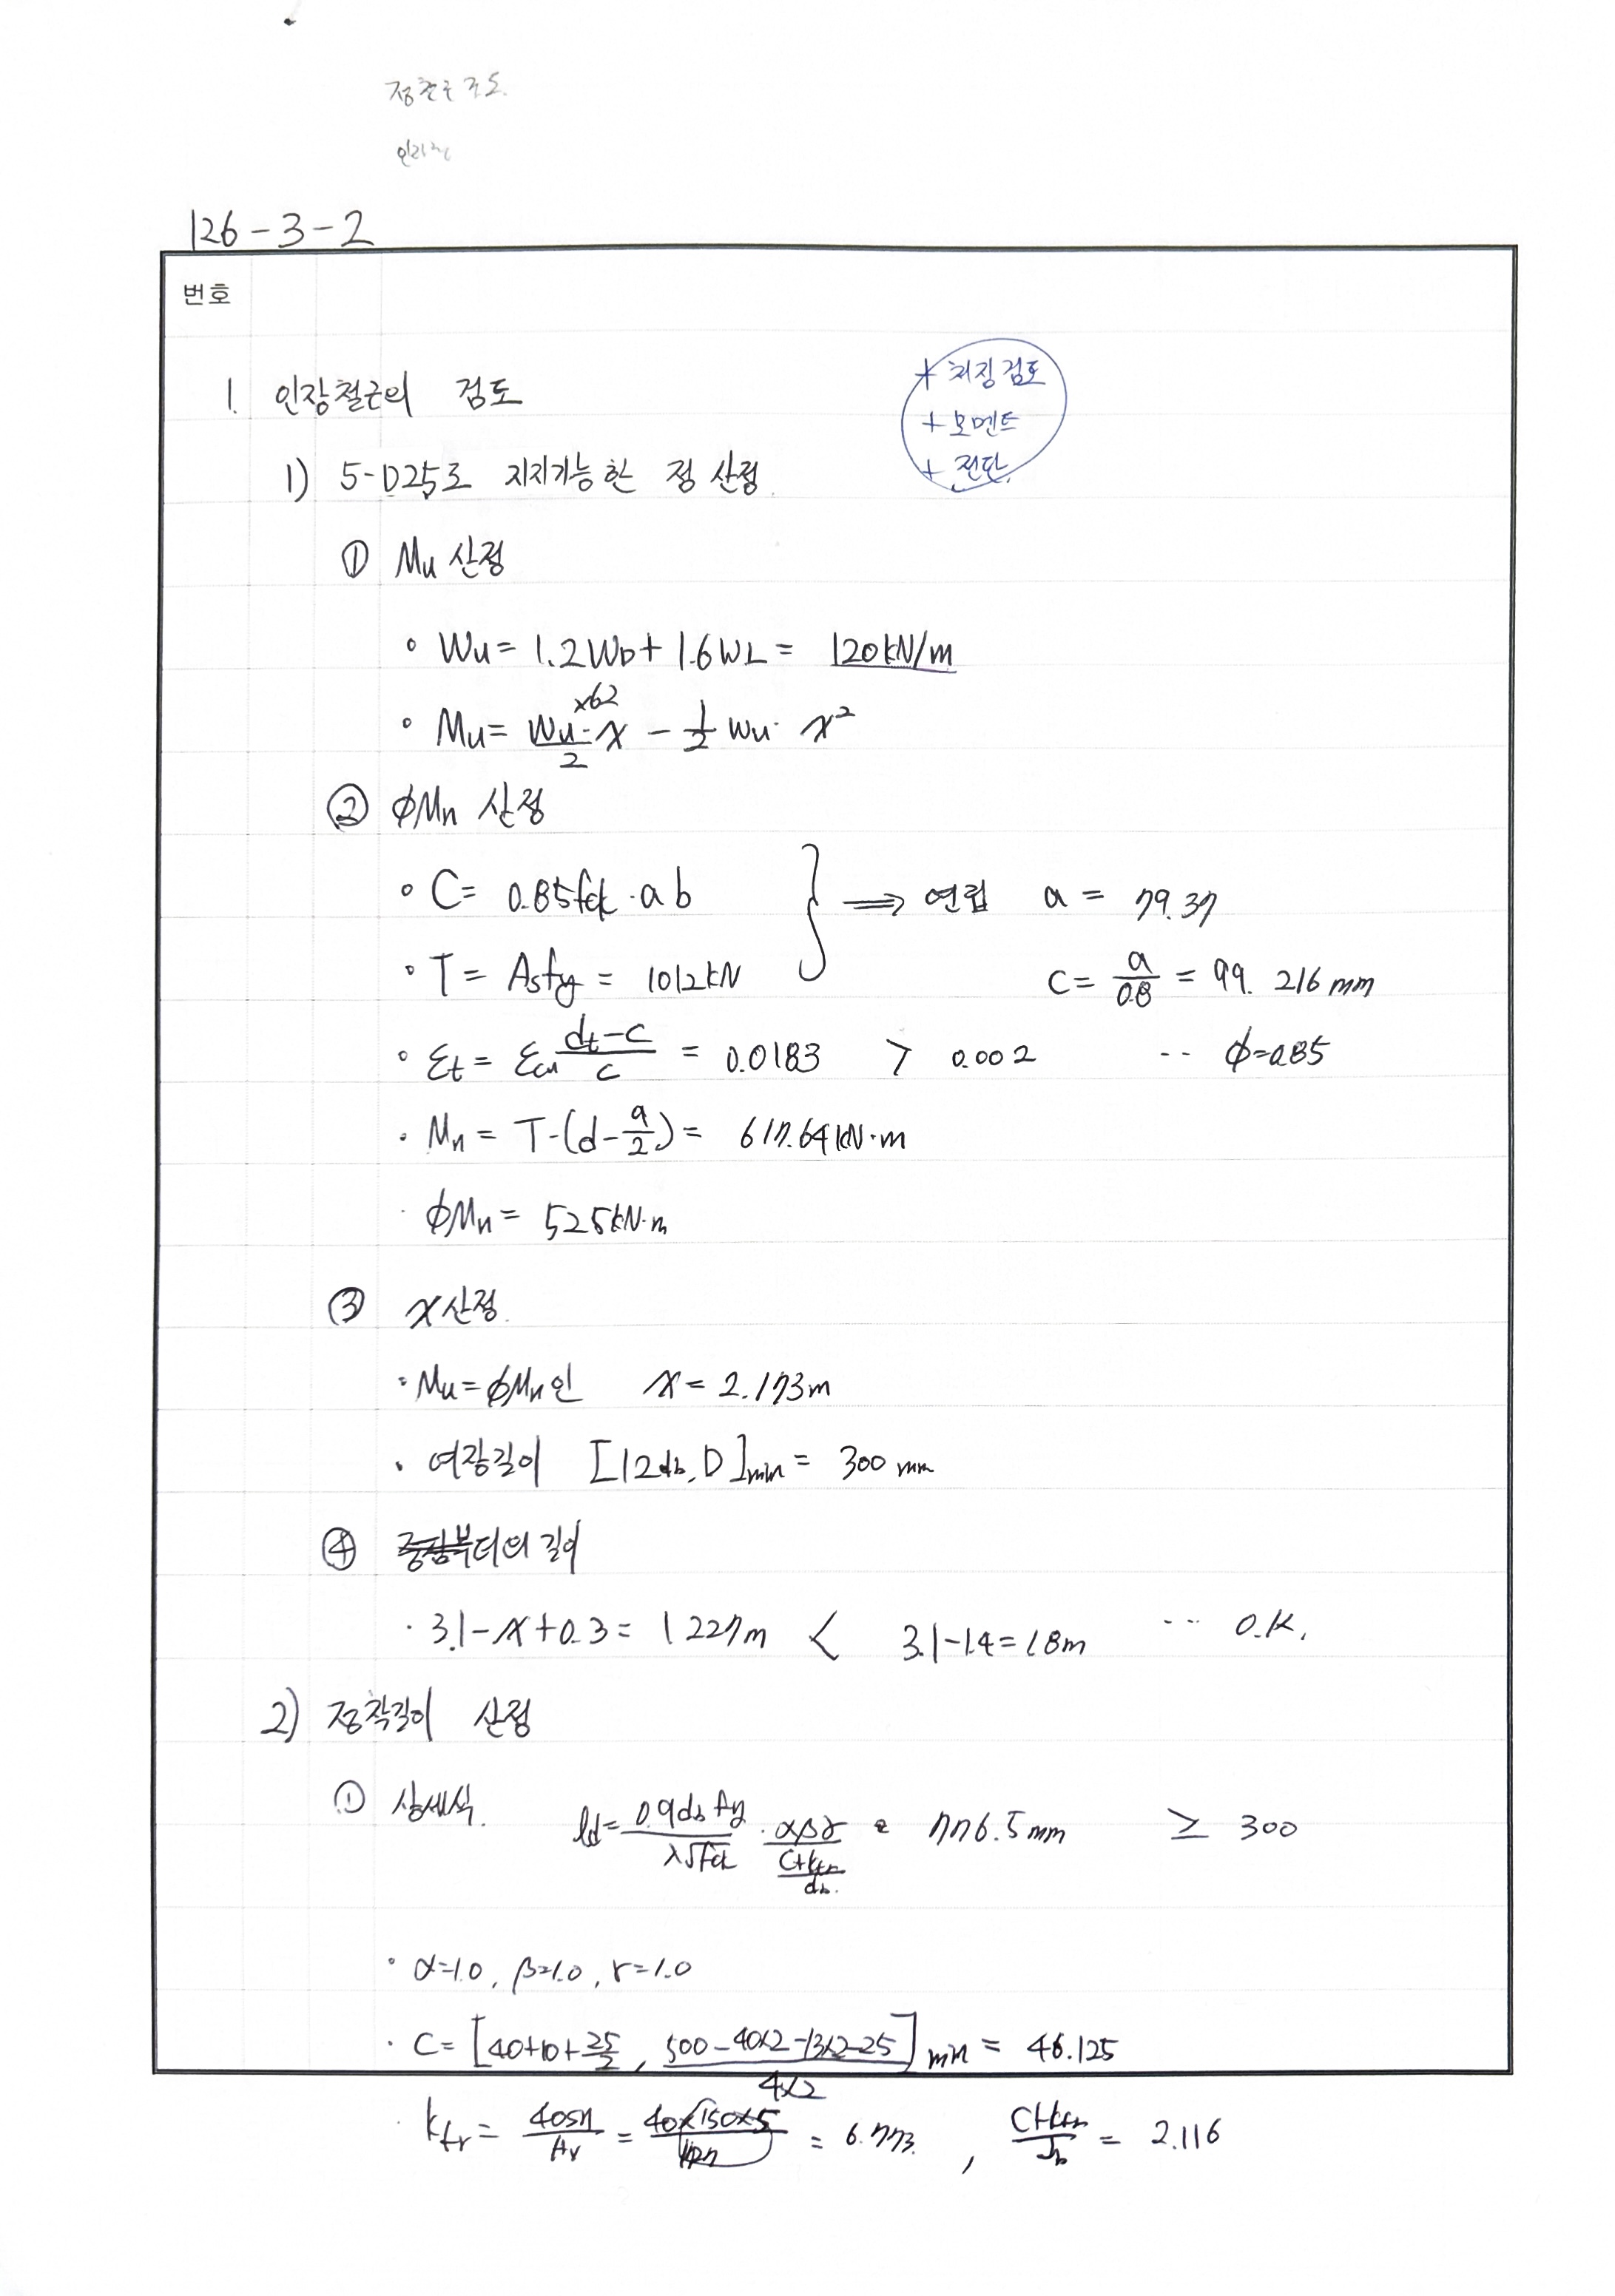 126-3-2
번호
1. 인장철근의 검토
+ 처짐검토
+ 모멘트
+ 전단.
1) 5-D25로 지지가능한 점 산정.
① Mu 산정
∘ Wu = 1.2WD + 1.6WL = 120kN/m
∘ Mu = Wu·x6.2/2 ·x - 1/2 Wu· x²
② φMn 산정
∘ C = 0.85fck·ab
⟹ 연립 a = 79.37
∘ T = Asfy = 1012kN
C = a/0.8 = 99.216mm
∘ εt = εcu (dt-c)/c = 0.0183 > 0.002 ·· φ=0.85
· Mn = T·(d-a/2) = 617.64kN·m
· φMn = 525kN·m
③ x산정.
· Mu=φMn인 x = 2.173m
· 여장길이 [12db, D]min = 300mm
④ 중앙부터의 길이
· 3.1-x+0.3 = 1.227m < 3.1-1.4=1.8m ··· O.K.
2) 정착길이 산정
① 상세식. ld = 0.9db fy/λ√fck · αβγ/((C+ktr)/db) = 776.5mm ≥ 300
∘ α=1.0, β=1.0, γ=1.0
· C = [40+10+25/2, (500-40x2-13x2-25)/(4x2)]min = 46.125
· ktr = 40sn/Av = = 6.773. , (C+ktr)/db = 2.116